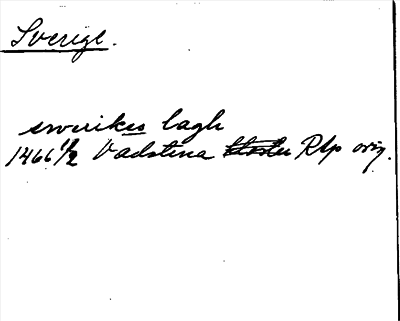 Sverige.
swerikes lagh
1466 1/2 Vadstena kloster Rtp orig.